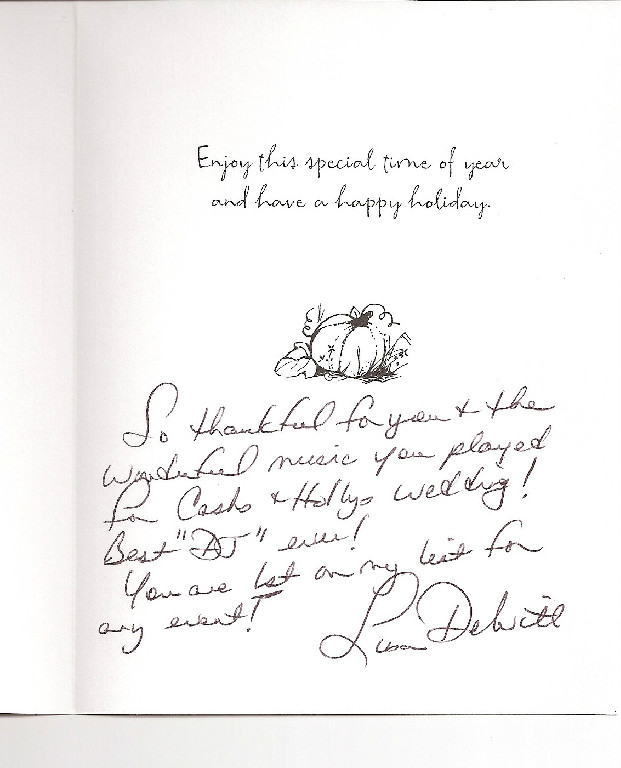 Enjoy this special time of year
and have a happy holiday.
So thankful for you & the
wonderful music you played
for Cash & Hollys wedding!
Best "DJ" ever!
You are 1st on my list for
any event!
Lisa DeWitt